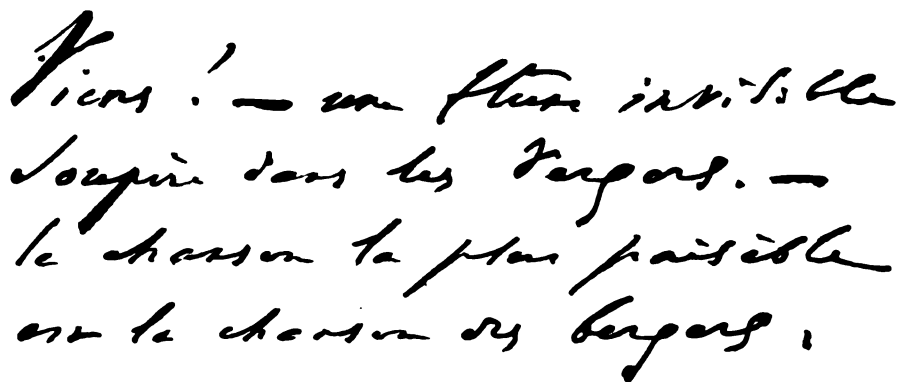 Viens ! — une flûte invisible
Soupire dans les vergers. —
la chanson la plus paisible
est la chanson des bergers.